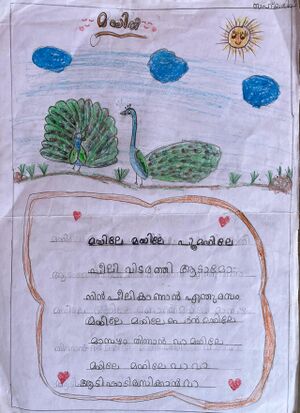 മയിൽ
മയിലേ മയിലേ പൂമയിലേ
പീലി വിടർത്തി ആടാമോ
നിൻ പീലികാണാൻ എന്തുരസം
മയിലേ മയിലേ പെൺമയിലേ
മാമ്പഴം തിന്നാൻ വാ മയിലേ
മയിലേ മയിലേ വാ വാ
ആടിപ്പാടിരസിക്കാൻ വാ